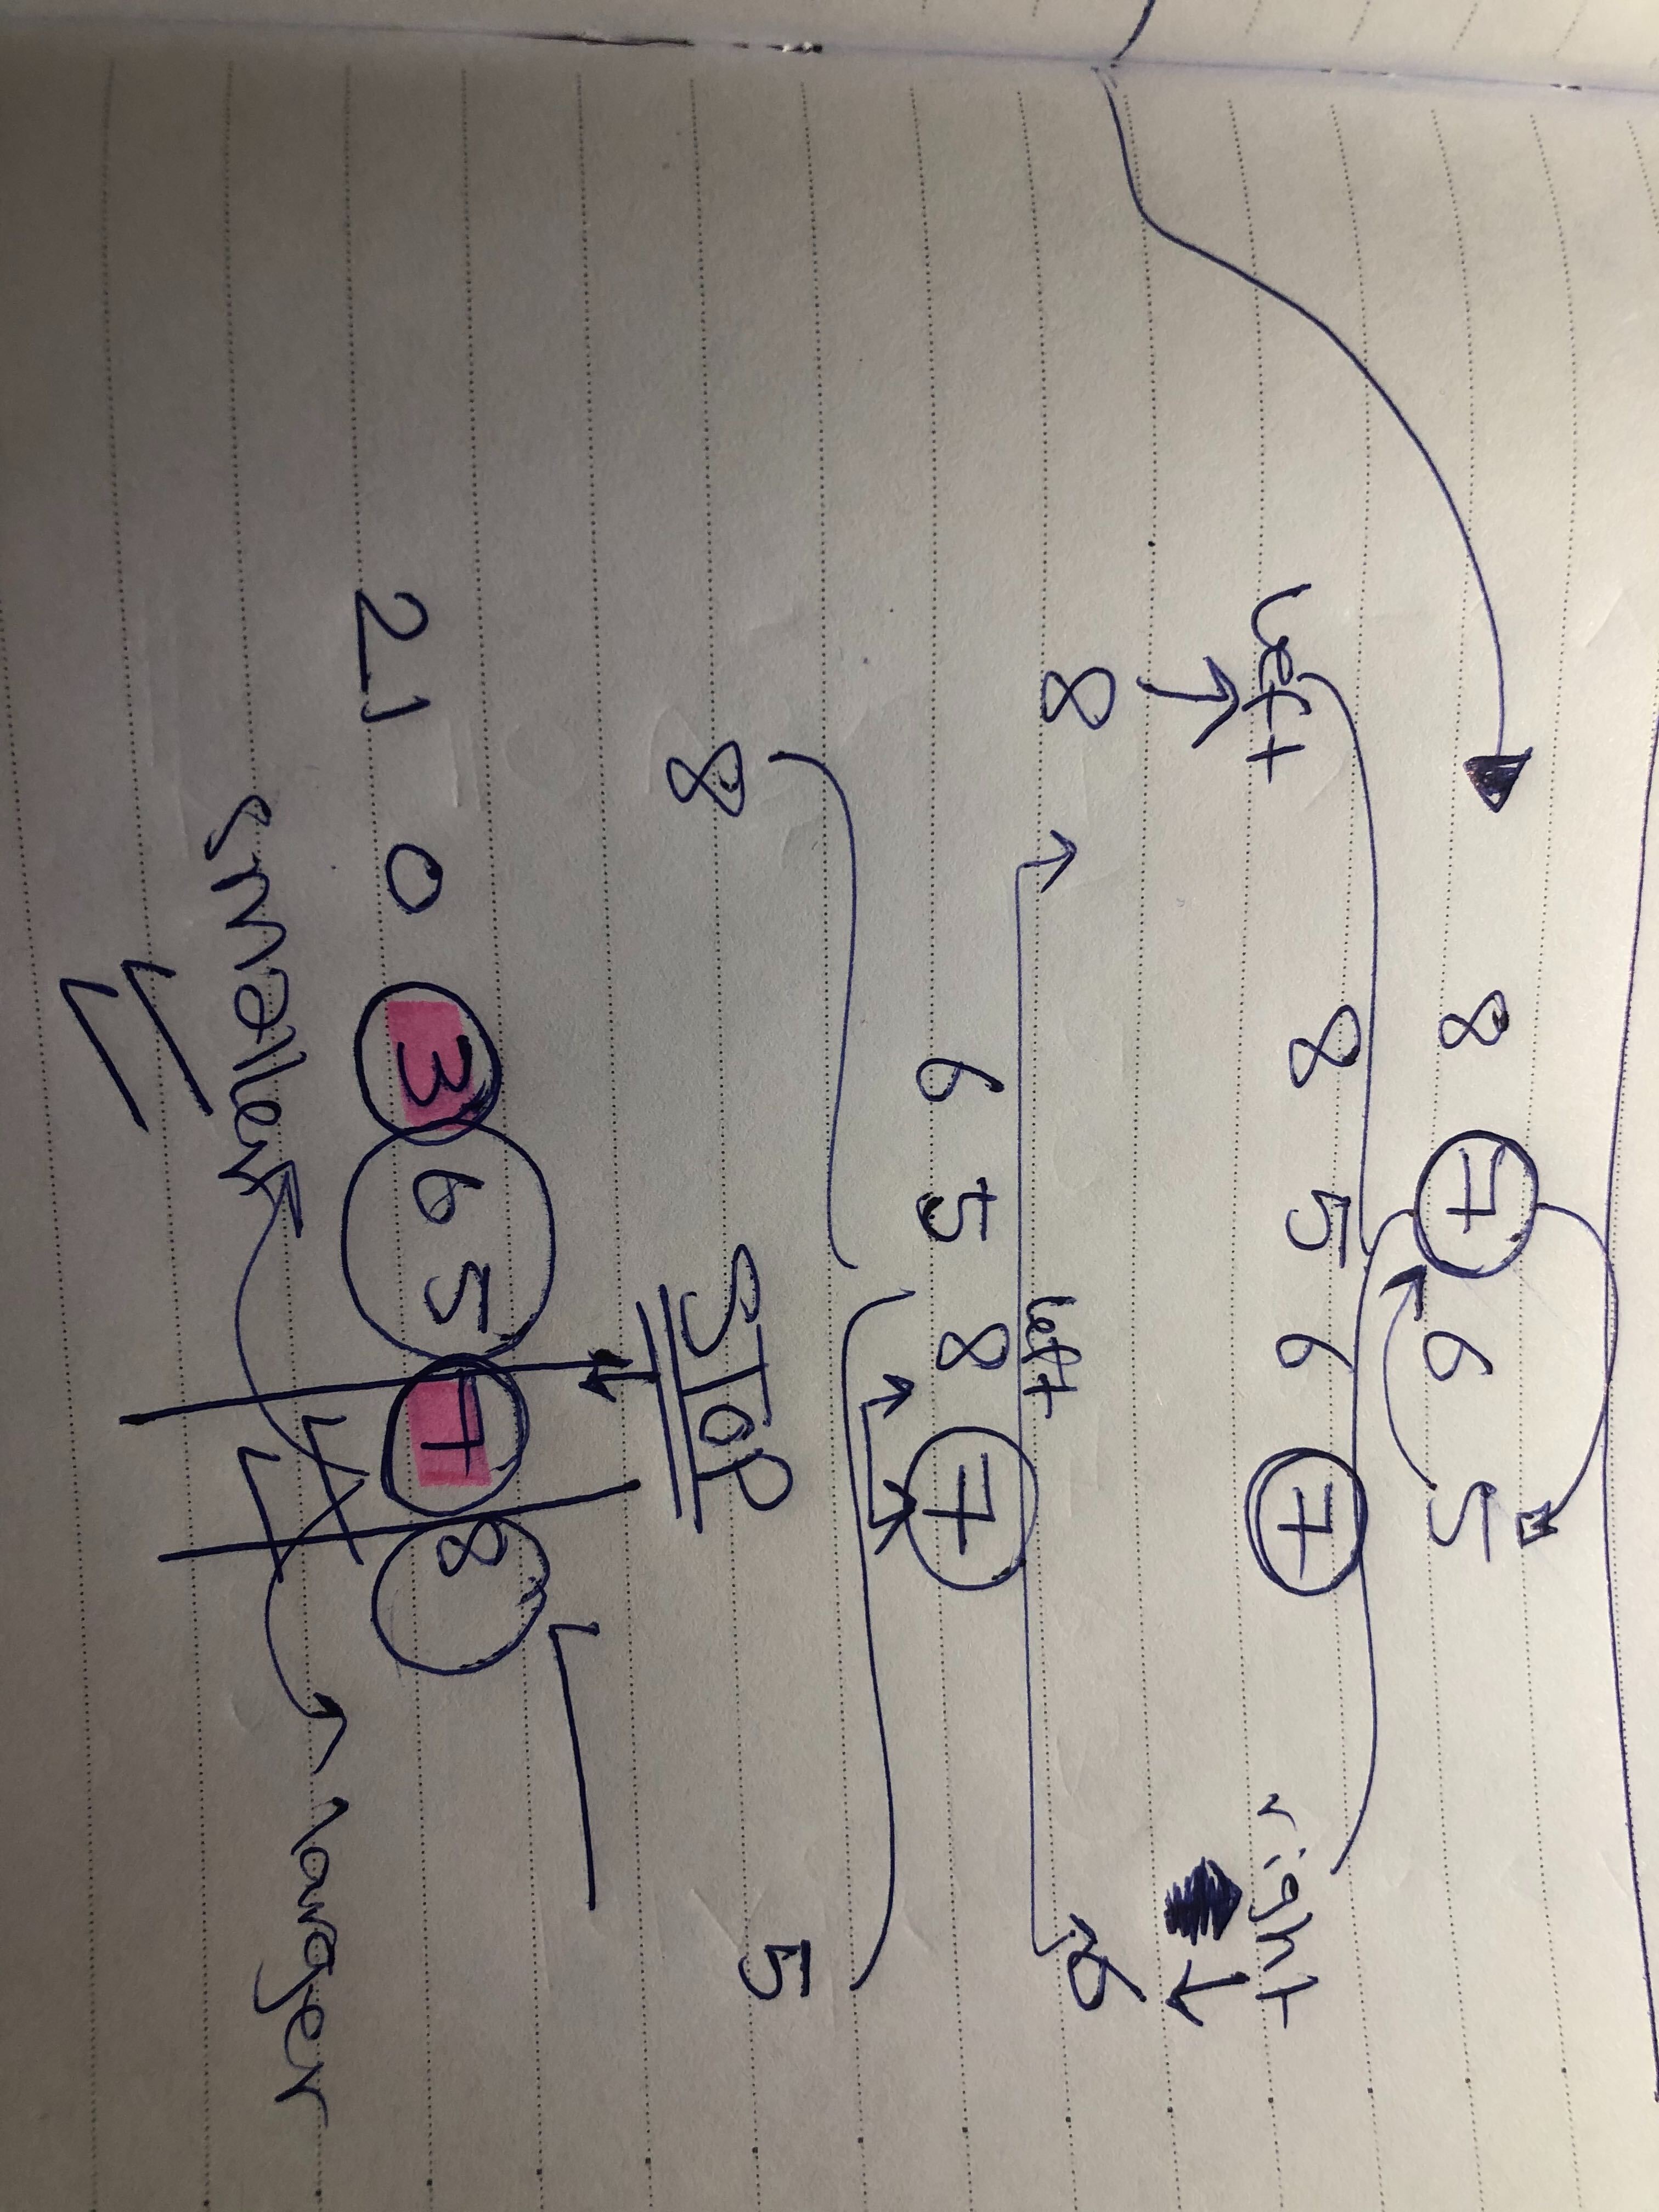 8 7 6 5
8 5 6 7
left right
8 6
left
6 5 8 7
8 5
STOP
2 1 0 3 6 5 7 8
smaller larger